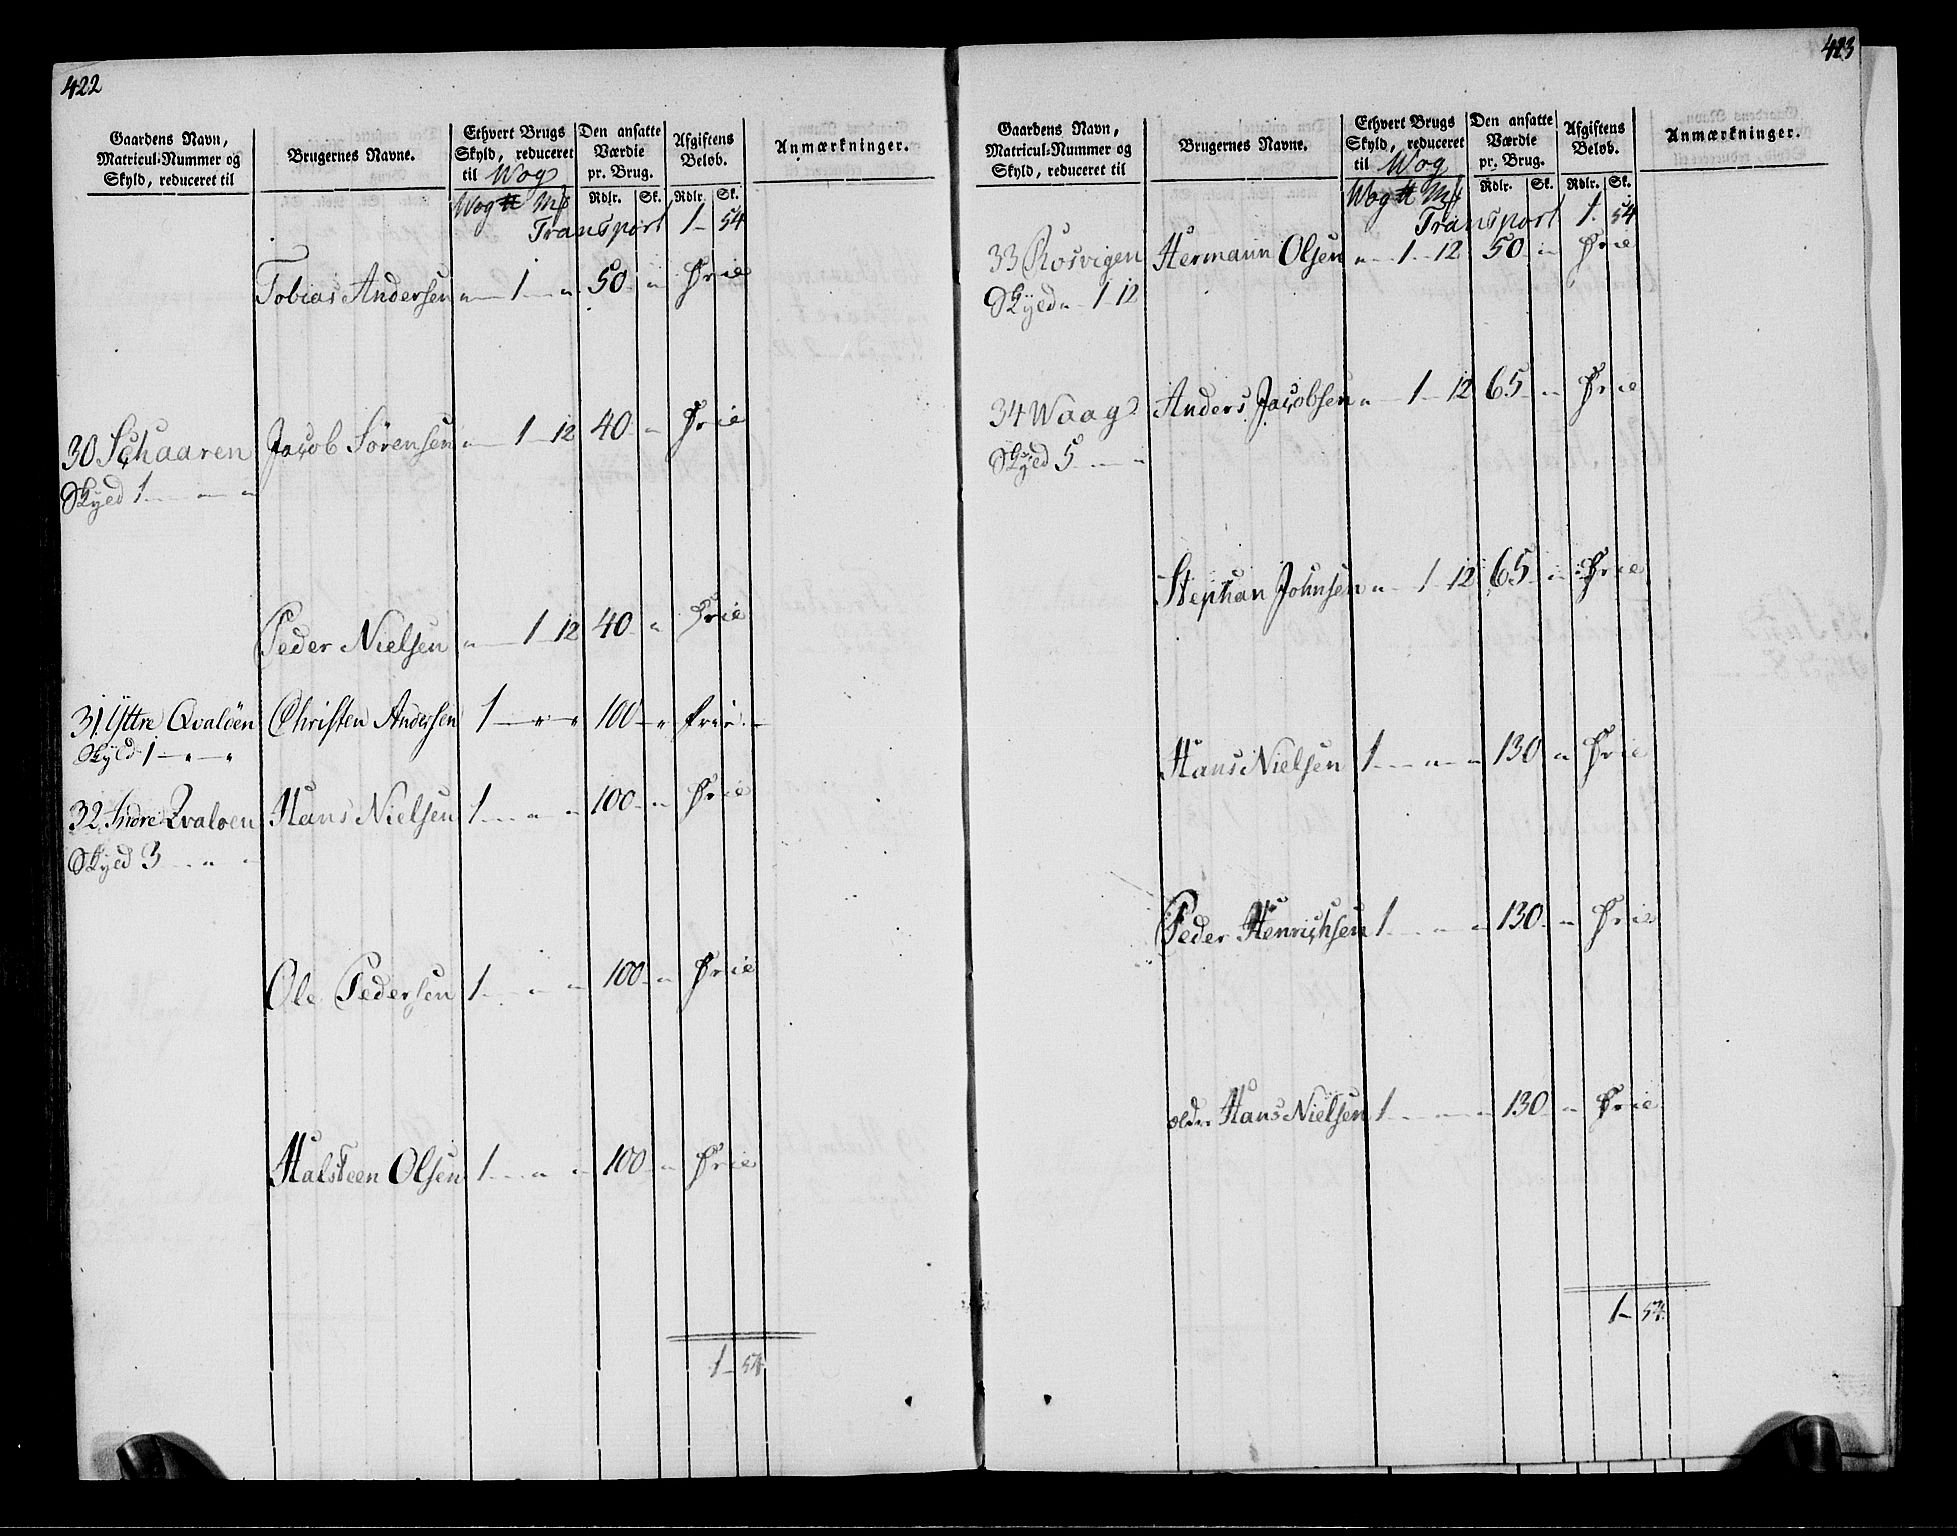 422
Gaardens Navn, Matricul-Nummer og Skyld, reduceret til
Brugernes Navne.
Ethvert Brugs Skyld, reduceret til Wog
Den ansatte Værdie pr. Brug.
Afgiftens Beløb.
Anmærkninger.
Wog ℔ Mk Rdlr. Sk. Rdlr. Sk.
Transport 1 - 54
Tobias Andersen „ 1 „ 50 „ Frie
30 Schaaren Jacob Sørensen „ 1 12 40 „ Frie
Skyld 1 „ „
Peder Nielsen „ 1 12 40 „ Frie
31. Yttre Qvaløen Christen Andersen 1 „ „ 100 „ frie
Skyld 1 „ „
32 Indre Qvaløen Hans Nielsen 1 „ „ 100 „ Frie
Skyld 3 „ „
Ole Pedersen 1 „ „ 100 „ Frie
Halsteen Olsen 1 „ „ 100 „ Frie
1 - 54
423
Gaardens Navn, Matricul-Nummer og Skyld, reduceret til
Brugernes Navne.
Ethvert Brugs Skyld, reduceret til Wog
Den ansatte Værdie pr. Brug.
Afgiftens Beløb.
Anmærkninger.
Wog ℔ Mk Rdlr. Sk. Rdlr. Sk.
Transport 1. 54
33 Rosvigen Hermann Olsen „ 1 12 50 „ Frie
Skyld „ 1 12
34 Waag Anders Jacobsen „ 1 12 65 „ Frie
Skyld 5 „
Stephan Johnsen „ 1 12 65 „ Frie
Hans Nielsen 1 „ „ 130 „ Frie
Peder Henrichsen 1 „ „ 130 „ Frie
oldr. Hans Nielsen 1 „ „ 130 „ Frie
1 - 54